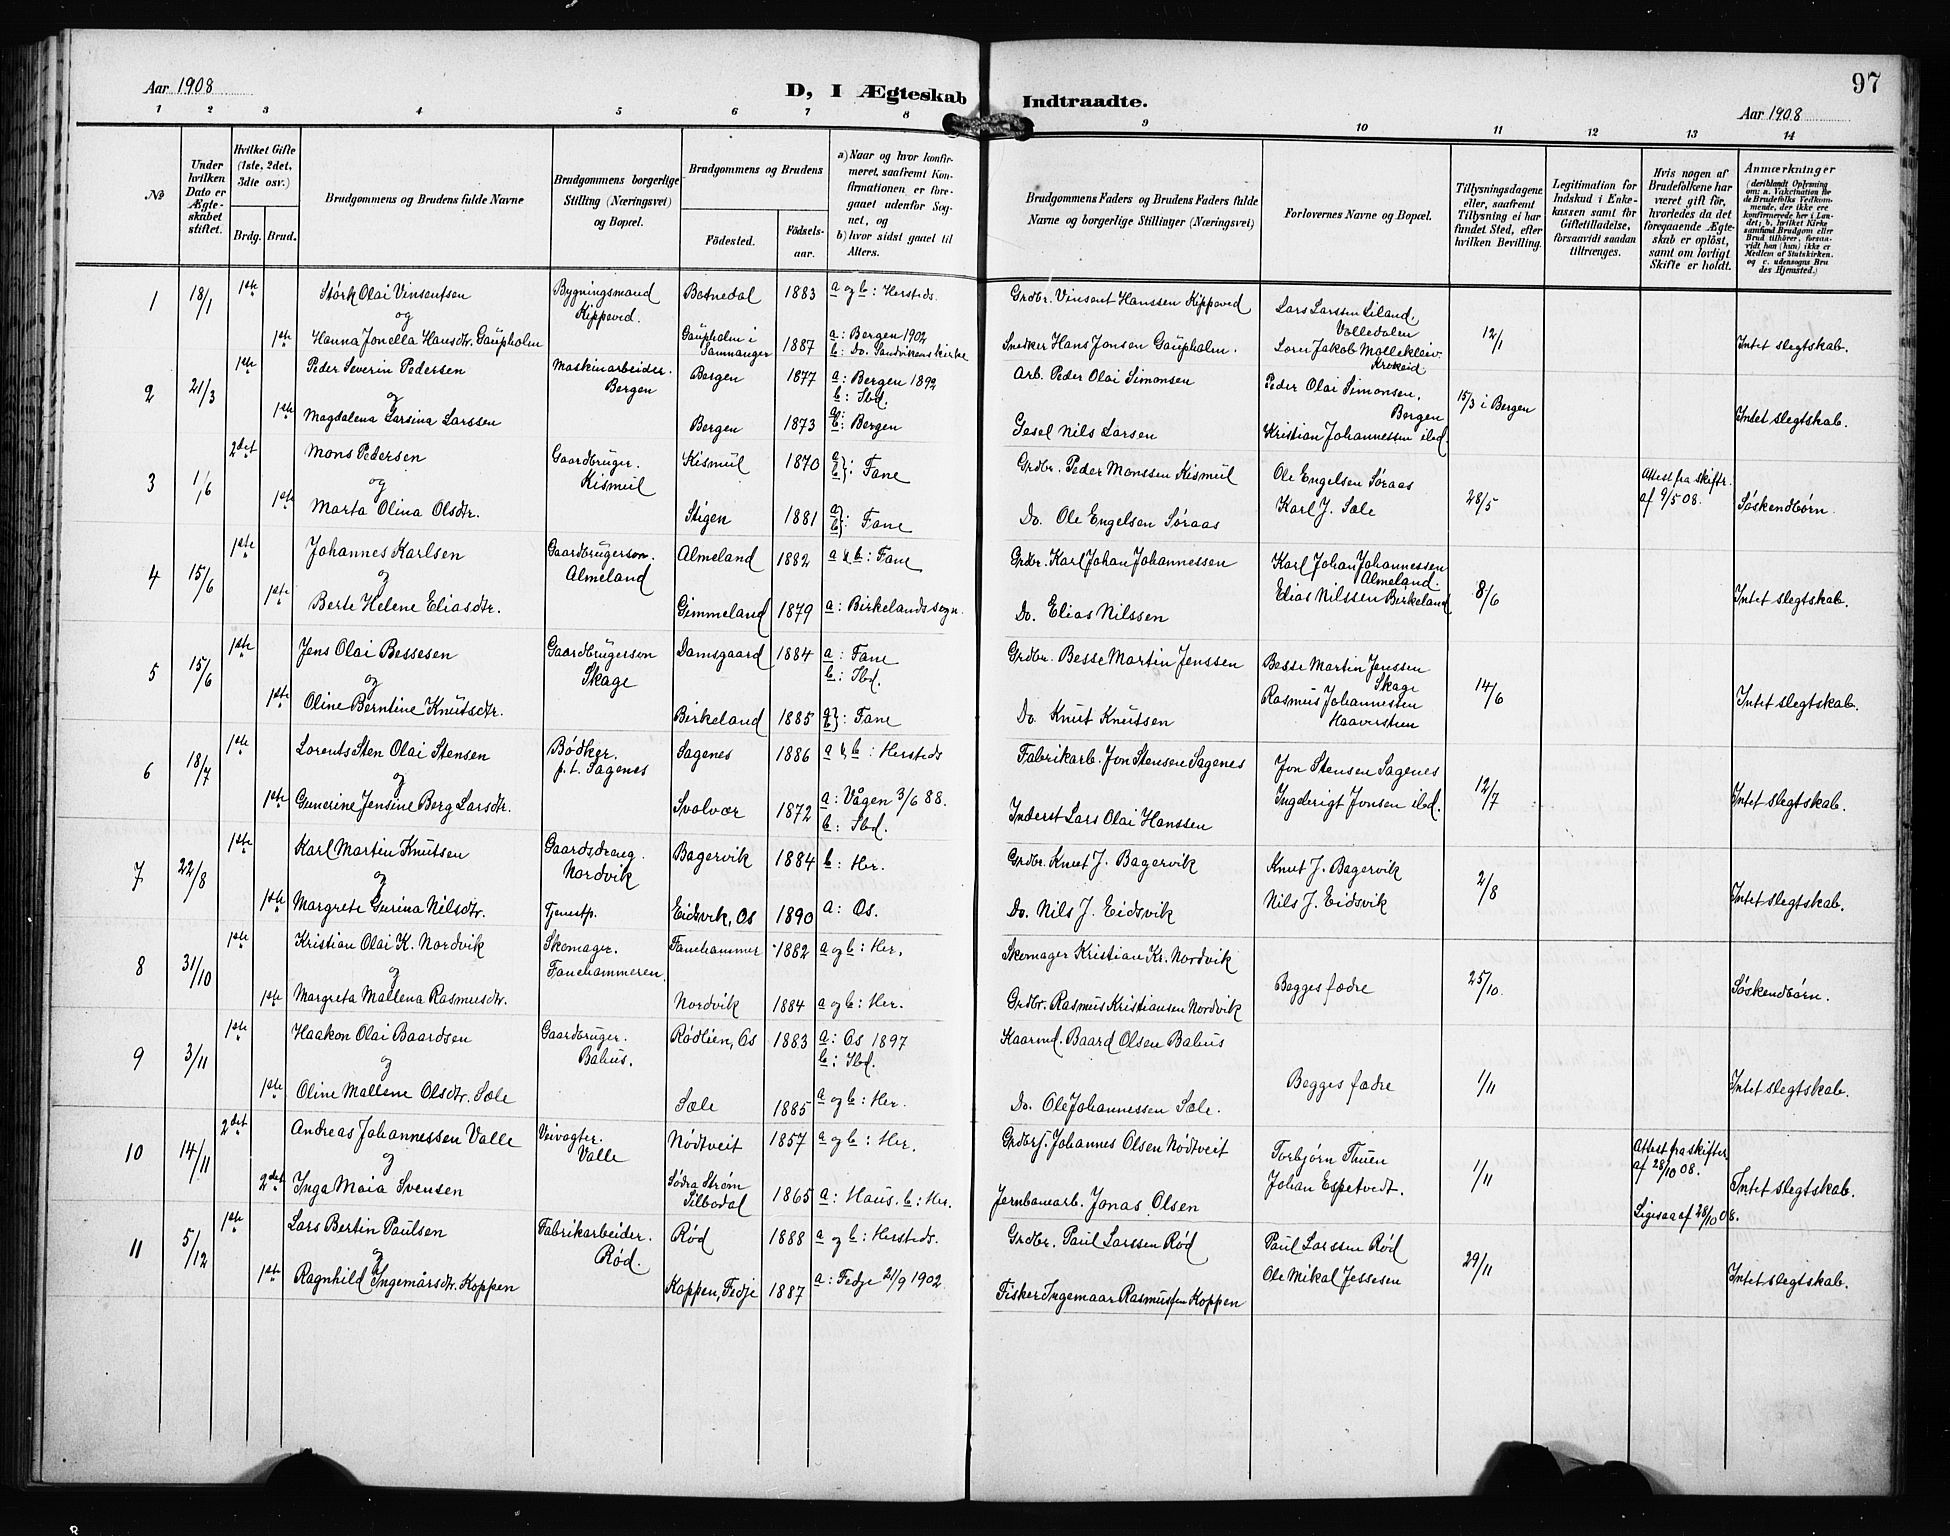 97
Aar 1908
D, I Ægteskab Indtraadte.
Aar 1908
1 2 3 4 5 6 7 8 9 10 11 12 13 14
No
Under hvilken Dato er Ægteskabet stiftet.
Hvilket Gifte (1ste, 2det, 3die osv.)
Brdg. Brud.
Brudgommens og Brudens fulde Navne
Brudgommens borgerlige Stilling (Næringsvei) og Bopæl.
Brudgommens og Brudens
Fødested. Fødselsaar.
a) Naar og hvor konfirmeret, saafremt Konfirmationen er foregaaet udenfor Sognet, og
b) hvor sidst gaaet til Alters.
Brudgommens Faders og Brudens Faders fulde Navne og borgerlige Stillinger (Næringsvei)
Forlovernes Navne og Bopæl.
Tillysningsdagene eller, saafremt Tillysning ei har fundet Sted, efter hvilken Bevilling.
Legitimation for Indskud i Enkekassen samt for Giftetilladelse, forsaavidt saadan tiltrænges.
Hvis nogen af Brudefolkene har været gift før, hvorledes da det foregaaende Ægteskab er opløst, samt om lovligt Skifte er holdt.
Anmærkninger
(deriblandt Oplysning om: a. Vakcination for de Brudefolks Vedkommende, der ikke ere konfirmerede her i Landet; b. hvilket Kirkesamfund Brudgom eller Brud tilhører, forsaavidt han (hun) ikke er Medlem af Statskirken. og c. udensogns Brudes Hjemsted.)
1 18/1 1ste Størk Olai Vinsentsen Bygningsmand Kippeved. Botnedal 1883 a og b: Hersteds. Grdbr. Vinsent Hanssen Kippeved Lars Larssen Liland, Valledalen 12/1
og
1ste Hanna Jonella Hansdtr. Gaupholm Gaupholm i Samnanger 1887 a: Bergen 1902 b: Do. Sandvikens kirke Snedker Hans Jonsen Gaupholm. Intet slegtskab.
2 21/3 1ste Peder Severin Pedersen Maskinarbeider. Bergen Bergen 1877 a: Bergen 1892 b: Ibd. Arb. Peder Olai Simonsen Peder Olai Simonsen, Bergen 15/3 i Bergen
og
1ste Magdalena Larsina Larssen Bergen 1873 a: b: Bergen Gesel Nils Larsen Kristian Johannessen ibd. Intet slegtskab.
3 1/6 2det Mons Pedersen Gaardbruger. Kismul Kismul 1870 a b}: Fane Grdbr. Peder Monssen Kismul Ole Engelsen Søraas 28/5 Attest fra skiftr. af 9/5 08.
og
1ste Marta Olina Olsdtr. Stigen 1881 a b}: Fane Do. Ole Engelsen Søraas Karl J. Sæle Søskendbørn.
4 15/6 1ste Johannes Karlsen Gaardbrugerson. Almeland Almeland 1882 a & b: Fane Grdbr. Karl Johan Johannessen Karl Johan Johannessen Almeland. 8/6
og
1ste Berte Helene Eliasdtr. Gimmeland 1879 a: Birkelands sogn. Do. Elias Nilssen Elias Nilssen Birkeland Intet slegtskab.
5 15/6 1ste Jens Olai Bessesen Gaardbrugerson Skage Damsgaard 1884 a: Fane b: Ibd. Grdbr. Besse Martin Jenssen Besse Martin Jenssen Skage 14/6
og
1ste Oline Berntine Knutsdtr. Birkeland 1885 a b}: Fane Do. Knut Knutsen Rasmus Johannesten Intet slegtskab.
6 18/7 1ste Lorents Sten Olai Stensen Bødker. p.t. Sagenes Sagenes 1886 a & b: Hersteds Fabrikarb. Jon Stensen Sagenes Jon Stensen Sagenes 12/7
og
1ste Gunerine Jensine Berg Larsdtr. Svolvær 1872 a: Vågen 3/6 88. b: Ibd. Inderst Lars Olai Hanssen Ingebrigt Jonsen ibd. Intet slegtskab.
7 22/8 1ste Karl Martin Knutsen Gaardsdreng. Nordvik Bagervik 1884 b: Her. Grdbr. Knut J. Bagervik Knut J. Bagervik 2/8
og
1ste Margrete Gurina Nilsdtr. Tjenestp. Eidsvik, Os 1890 a: Os. Do. Nils J. Eidsvik Nils J. Eidsvik Intet slegtskab.
8 31/10 1ste Kristian Olai K. Nordvik Skomager. Fanehammeren Fanehammer 1882 a og b: Her. Skomager Kristian Kr. Nordvik Begges fædre 25/10.
og
1ste Margreta Mallena Rasmusdtr. Nordvik 1884 a og b: Her. Grdbr. Rasmus Kristiansen Nordvik Søskendbørn.
9 3/11 1ste Haakon Olai Baardsen Gaardbruger. Bahus. Rødlien, Os 1883 a: Os 1897 b: Ibd. Kaarmd. Baard Olsen Bahus Begges fædre 1/11
og
1ste Oline Mallene Olsdtr. Sæle Sæle 1885 a og b: Her. Do. Ole Johannessen Sæle. Intet slegtskab.
10 14/11 2det Andreas Johannessen Valle Veivogter. Valle Nødtveit 1857 a og b: Her. Grdbrf. Johannes Olsen Nødtveit Torbjørn Thuen 1/11 Attest fra skifter af 28/10 08.
og
2det Inga Maia Svensen Sødra Strøm Silbodal 1865 a: Haus. b: Her. Jernbanearb. Jonas Olsen Johan Espetvedt. Ligesaa af 28/10 08. Intet slegtskab.
11 5/12 1ste Lars Bertin Paulsen Fabrikarbeider. Rød. Rød 1888 a og b: Hersteds. Grdbr. Paul Larssen Rød Paul Larssen Rød 29/11
og
1ste Ragnhild Ingemårsdtr. Koppen Koppen, Fedje 1887 a: Fedje 21/9 1902 Fisker Ingemaar Rasmussen Koppen Ole Mikal Jessesen Intet slegtskab.